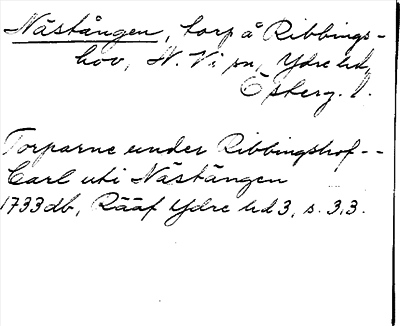 Nästången, torp å Ribbings-
hov, N. Vi sn, Ydre hd,
Östergl.
Torparne under Ribbingshof--
Carl uti Nästängen
1733 db, Rääf Ydre hd 3, s. 313.